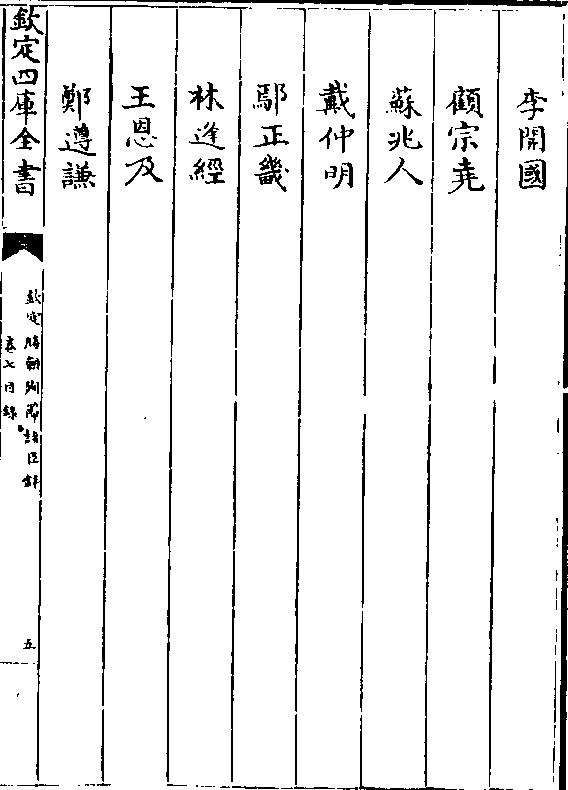 李開國
顧宗堯
蘇兆人
戴仲明
鄢正畿
林逢經
王恩及
鄭遵謙
欽定四庫全書
欽定勝朝殉節諸臣錄
卷七目錄
五